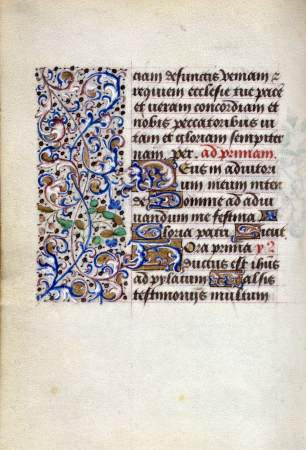 ciam defunctis veniam ⁊
requiem ecclesie tue pacē
et ueram concordiam et
nobis peccatoribus ui
tam et gloriam sempiter
nam. per. ad primam.
Deus in adiutori
um meum inten
de Domine ad adiu
uandum me festina
Gloria patri Sicut
Hora prima
ductus est ihūs
ad pylatum Falsis
testimonijs multum